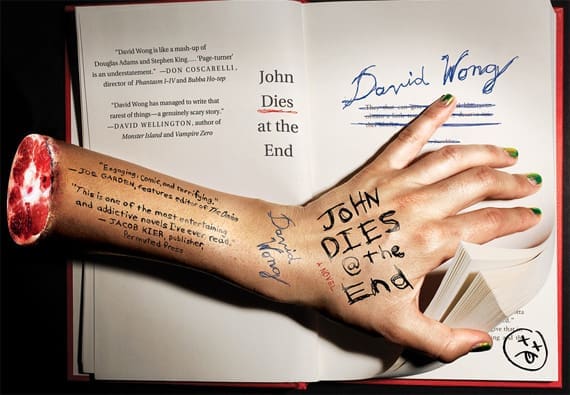 "David Wong is like a mash-up of
Douglas Adams and Stephen King.... 'Page-turner'
is an understatement." —DON COSCARELLI,
director of Phantasm I–IV and Bubba Ho-tep
"David Wong has managed to write that
rarest of things—a genuinely scary story."
—DAVID WELLINGTON, author of
Monster Island and Vampire Zero
John
Dies
at the
End
David Wong
"Engaging, comic, and terrifying."
—JOE GARDEN, features editor of The Onion
"This is one of the most entertaining
and addictive novels I've ever read."
— JACOB KIER, publisher,
Permuted Press
David
Wong
JOHN
DIES
@ the
End
A NOVEL